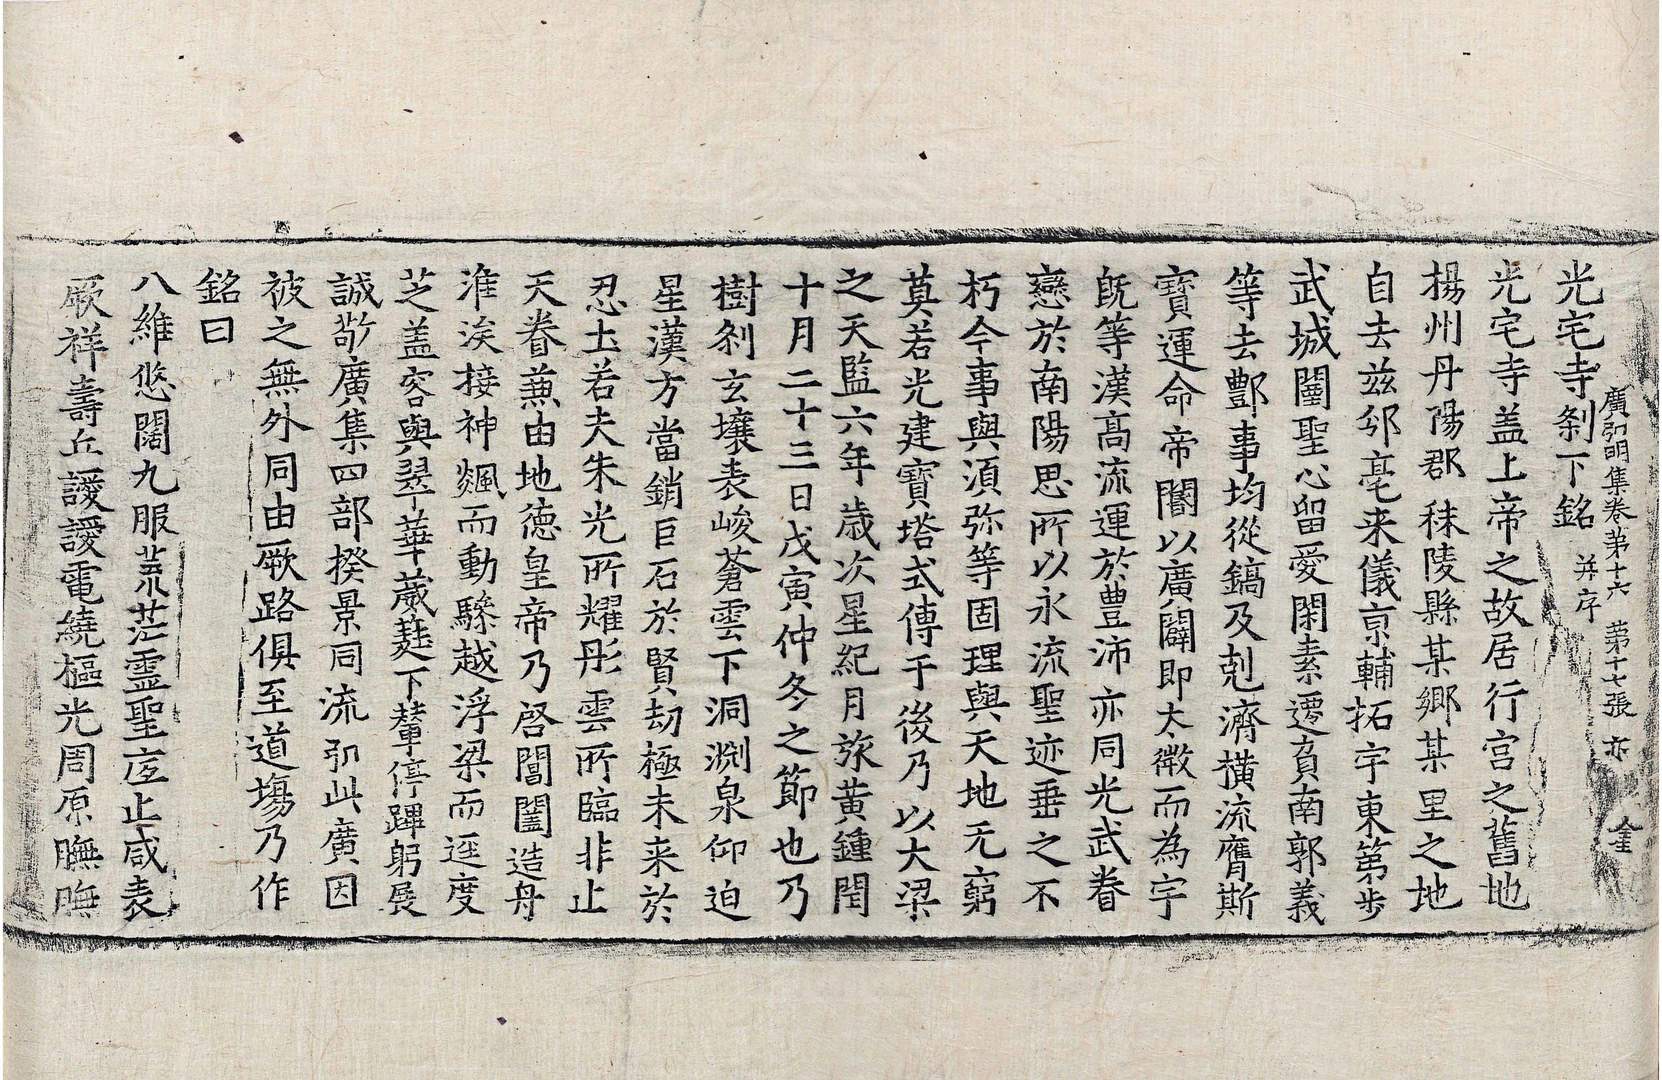 廣弘明集卷苐十六 苐十七張 亦
光宅寺剎下銘 并序
光宅寺盖上帝之故居行宫之舊地
揚州丹陽郡秣陵縣某鄉某里之地
自去兹邠亳来儀京輔拓宇東第步
武城闉聖心留愛閑素遷負南郭義
等去酆事均從鎬及剋濟横流膺斯
寳運命帝閽以廣闢即太微而為宇
旣等漢高流運於豊沛亦同光武眷
戀於南陽思所以永流聖迹垂之不
朽今事與湏弥等固理與天地无窮
莫若光建寳塔式傳于後乃以大梁
之天監六年歳次星紀月旅黄鍾閏
十月二十三日戊寅仲冬之節也乃
樹剎玄壤表峻蒼雲下洞渕泉仰迫
星漢方當銷巨石於賢劫極未来於
忍土若夫朱光所耀彤雲所臨非止
天眷蒹由地徳皇帝乃啓閶闔造舟
淮涘接神飈而動驂越浮梁而逕度
芝盖容與翠華葳蕤下輦停蹕躬展
誠敬廣集四部揆景同流弘此廣因
被之無外同由厥路俱至道塲乃作
銘曰
八維悠闊九服荒茫靈聖底止咸表
厥祥壽丘謖謖電繞樞光周原膴膴